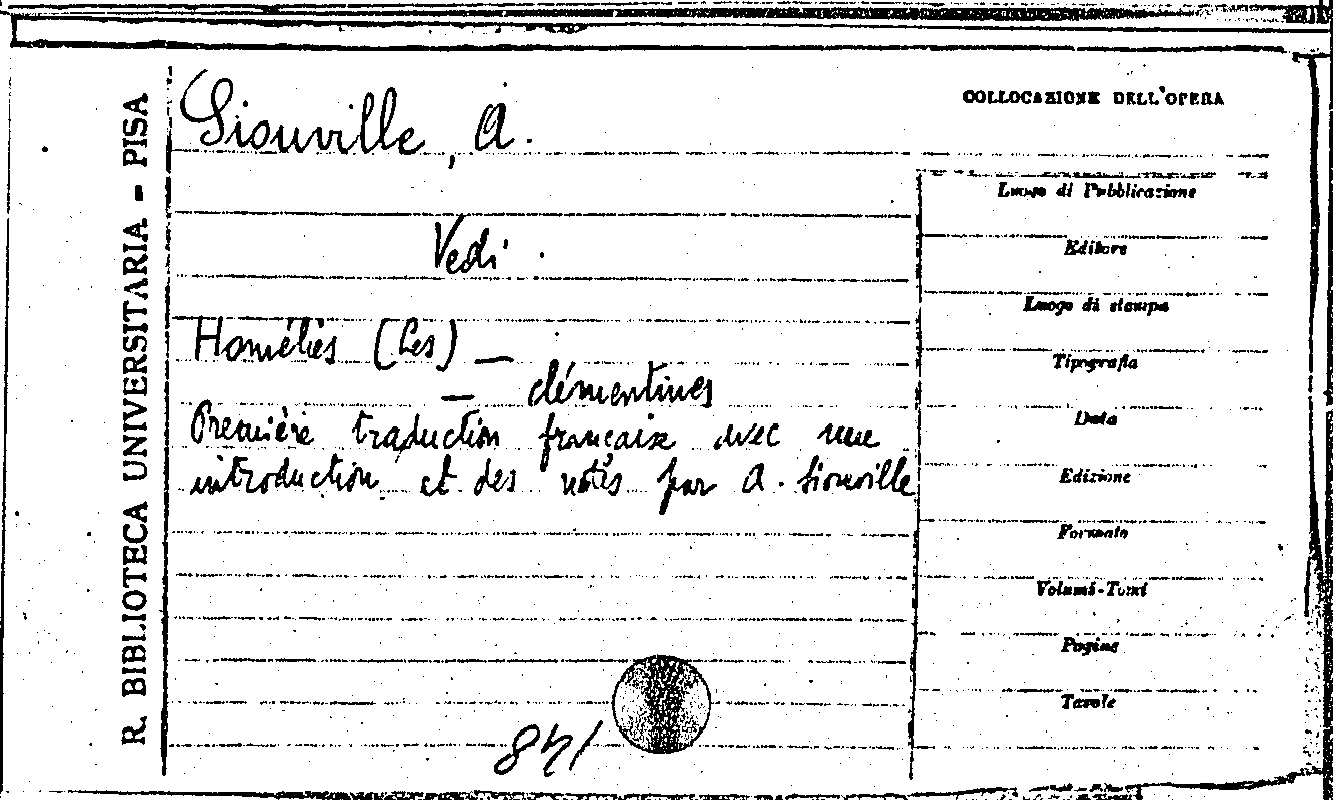 R. BIBLIOTECA UNIVERSITARIA - PISA
Siouville, A.
Vedi.
Homélies (Les) —
— clémentines
Première traduction française avec une
introduction et des notes par A. Siouville
COLLOCAZIONE DELL'OPERA
Luogo di Pubblicazione
Editore
Luogo di stampa
Tipografia
Data
Edizione
Formato
Volumi-Tomi
Pagine
Tavole